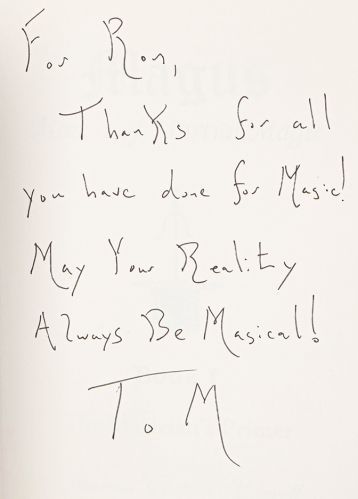 For Ron,
Thanks for all
you have done for Magic!
May Your Reality
Always Be Magical!
ToM